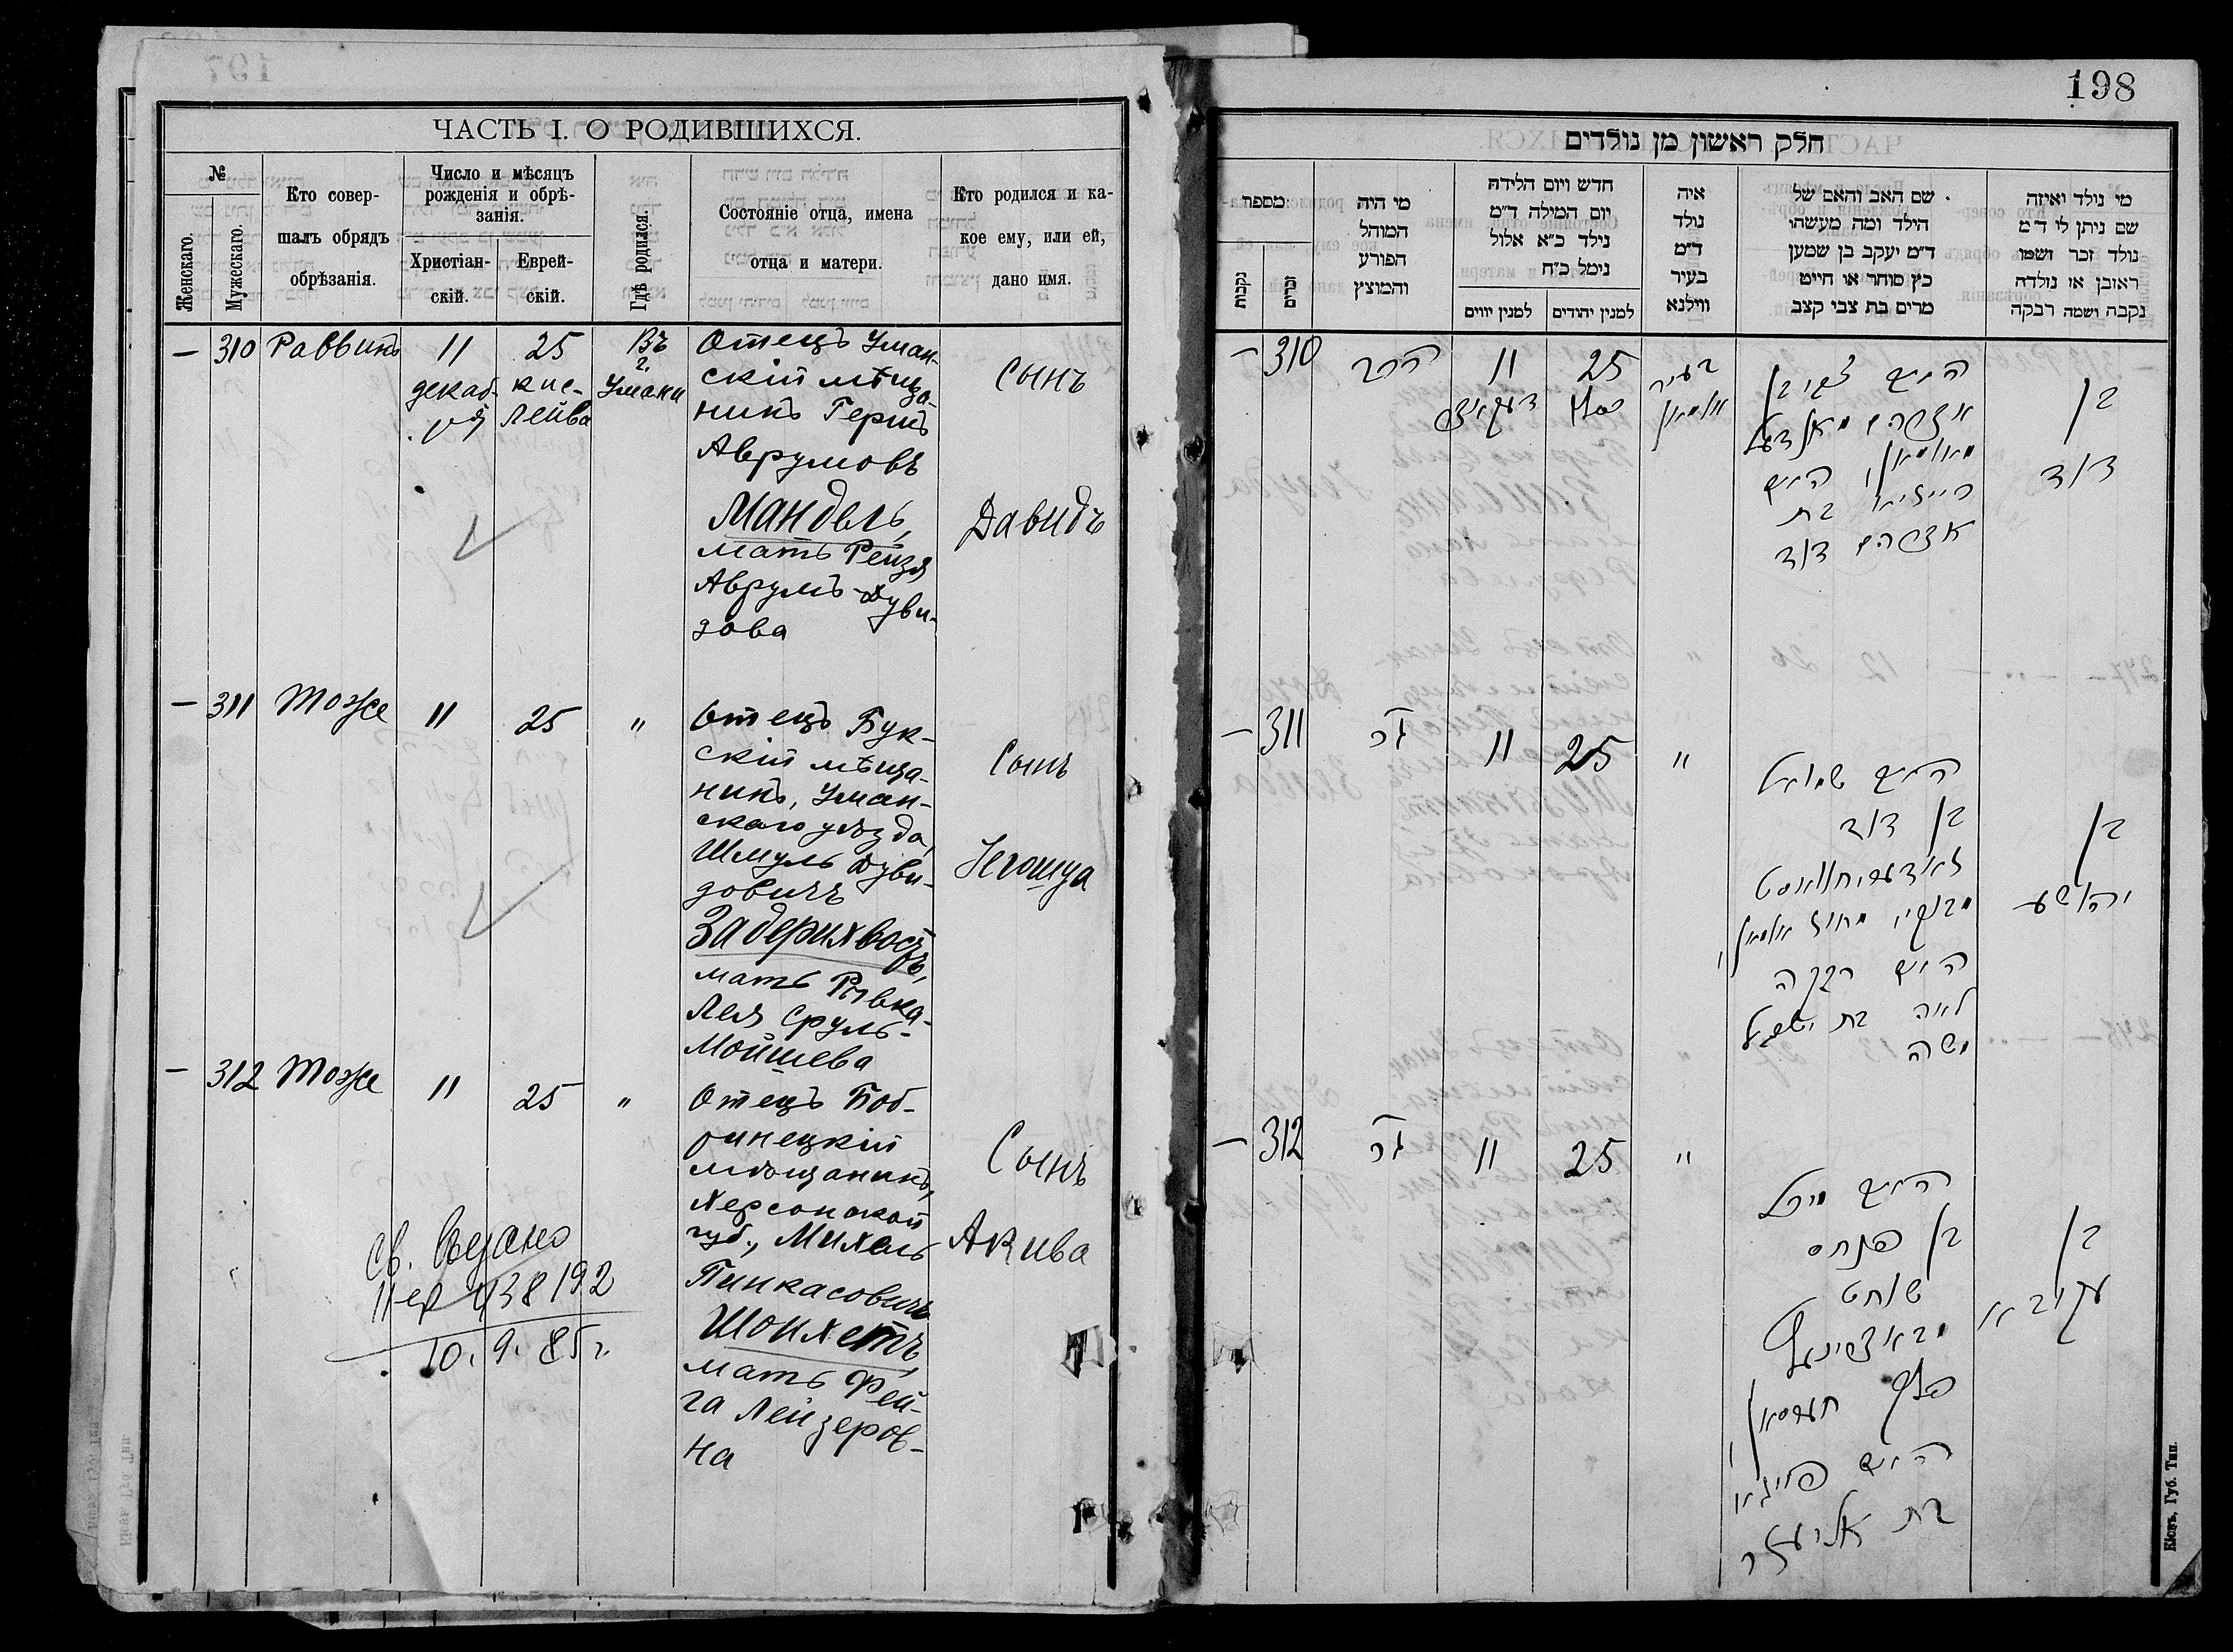 198
ЧАСТЬ I. О РОДИВШИХСЯ.
№
Женскаго.
Мужескаго.
Кто совер-
шалъ обрядъ
обрѣзанія.
Число и мѣсяцъ
рожденія и обрѣ-
занія.
Христіан-
скій.
Еврей-
скій.
Гдѣ родился.
Состояніе отца, имена
отца и матери.
Кто родился и ка-
кое ему, или ей,
дано имя.
— 310 Раввинъ
11
декаб-
ря
25
кис-
лейва
Въ
г.
Умани
Отецъ Уман-
скій мѣща-
нинъ Гершъ
Аврумовъ
Мандель,
мать Рейзя
Аврумъ-Дуви-
дова
Сынъ
Давидъ
— 311 Тоже
11
25
"
Отецъ Бук-
скій мѣща-
нинъ, Уман-
скаго уѣзда,
Шмуль Дуви-
довичъ
Задерихвостъ,
мать Рывка-
Лея Сруль-
Мойшева
Сынъ
Іегошуа
— 312 Тоже
11
25
"
Отецъ Боб-
ринецкій
мѣщанинъ,
Херсонской
губ., Михель
Пинкасовичъ
Шойхетъ,
мать Фей-
га Лейзеров-
на
Сынъ
Акива
св. выдано
10. 9. 85 г.
חלק ראשון מן נולדים
מספר
נקבות
זכרים
מי היה
המוהל
הפורע
והמוצץ
חדש ויום הלידה
יום המילה ד"מ
נילד כ"א אלול
נימל כ"ח
למנין יווים
למנין יהודים
איה
נולד
ד"מ
בעיר
ווילנא
שם האב והאם של
הילד ומה מעשהו
ד"מ יעקב בן שמען
כץ סוחר או חייט
מרים בת צבי קצב
מי נילד ואיזה
שם ניתן לו ד"מ
נולד זכר ושמו
ראובן או נולדה
נקבה ושמה רבקה
— 310
הרב
11
25
כסלו
בעיר
אומאן
בת
אברהם דוד
בן
דוד
— 311
11
25
"
שמואל
בן דוד
רבקה
לאה בת ישראל
משה
בן
יהושע
— 312
11
25
"
מיכל
בן פנחס
שוחט
פלך חערסאן,
פייגא
בת אליעזר
בן
עקיבא
Кіевъ, Губ. Тип.